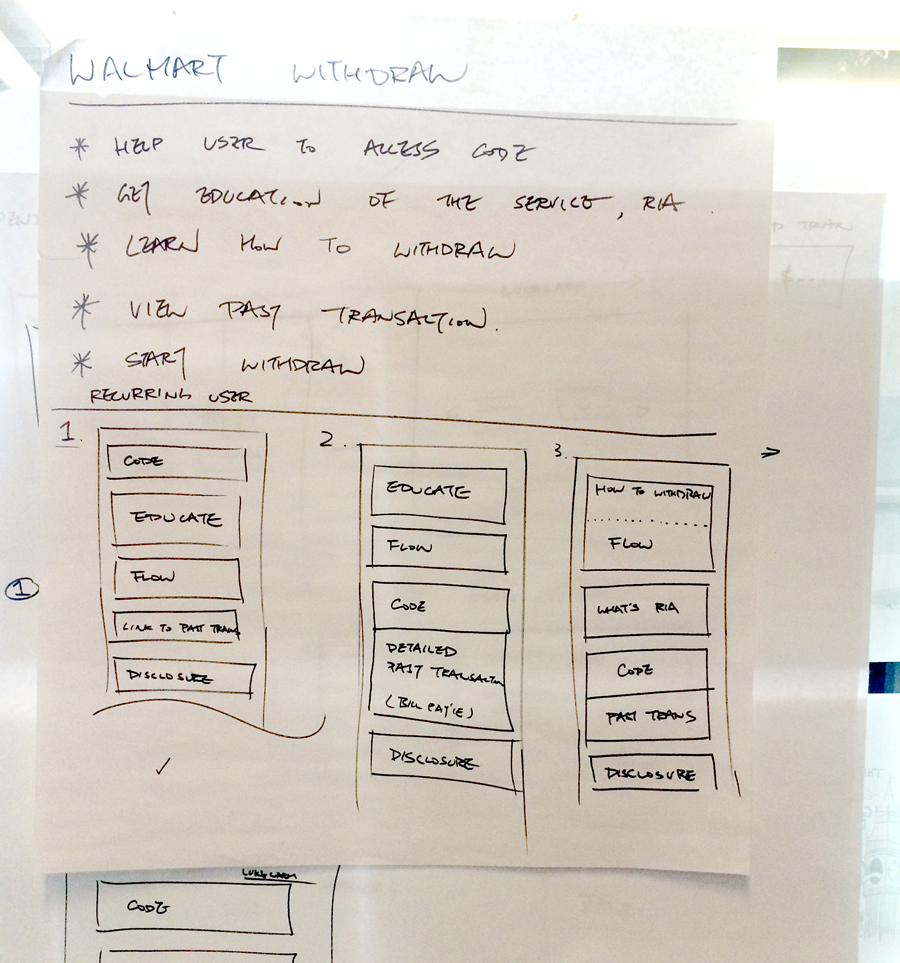 WALMART WITHDRAW
* HELP USER TO ACCESS CODE
* GET EDUCATION OF THE SERVICE, RIA.
* LEARN HOW TO WITHDRAW
* VIEW PAST TRANSACTION.
* START WITHDRAW
RECURRING USER
1.
CODE
EDUCATE
FLOW
LINK TO PAST TRANS
DISCLOSURE
✓
2.
EDUCATE
FLOW
CODE
DETAILED
PAST TRANSACTION
(BILL PAY'IE)
DISCLOSURE
3.
HOW TO WITHDRAW
FLOW
WHAT'S RIA
CODE
PAST TRANS
DISCLOSURE
→
1
CODE